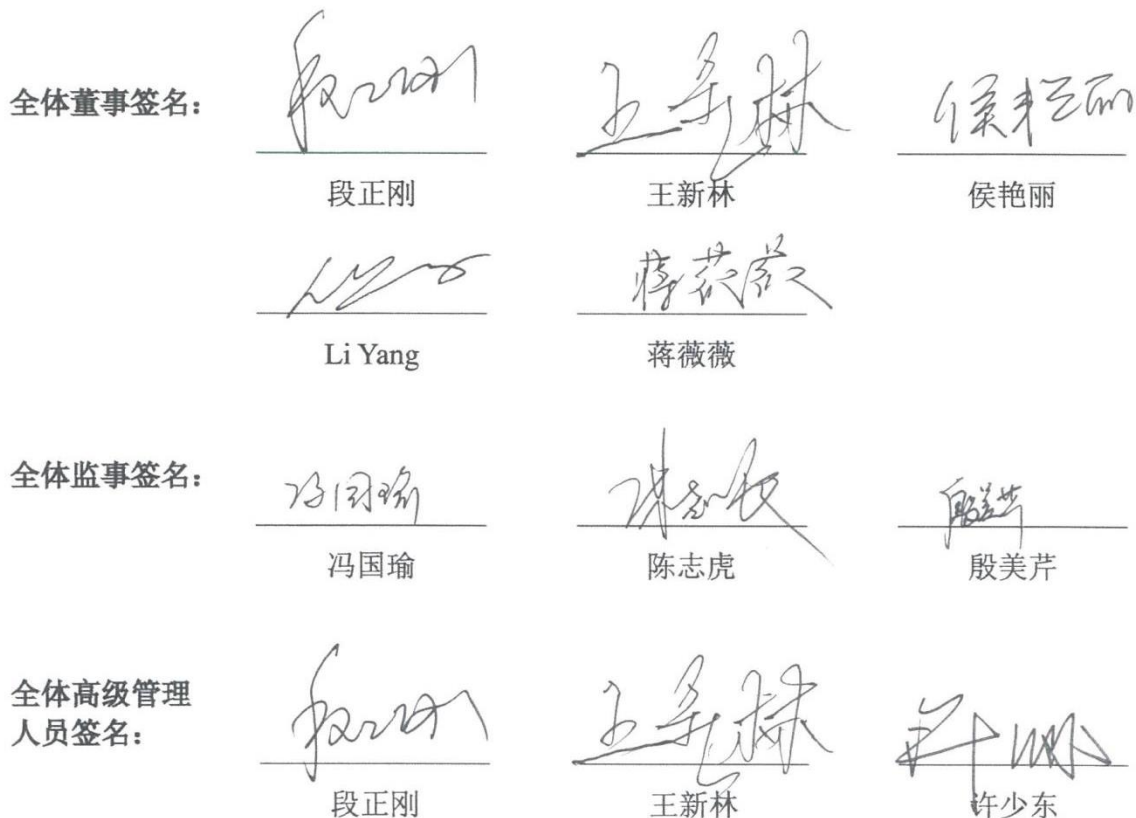 全体董事签名：
段正刚 王新林 侯艳丽
段正刚 王新林 侯艳丽
Li Yang 蒋薇薇
全体监事签名：
冯国瑜 陈志虎 殷美芹
冯国瑜 陈志虎 殷美芹
全体高级管理
人员签名：
段正刚 王新林
段正刚 王新林 许少东